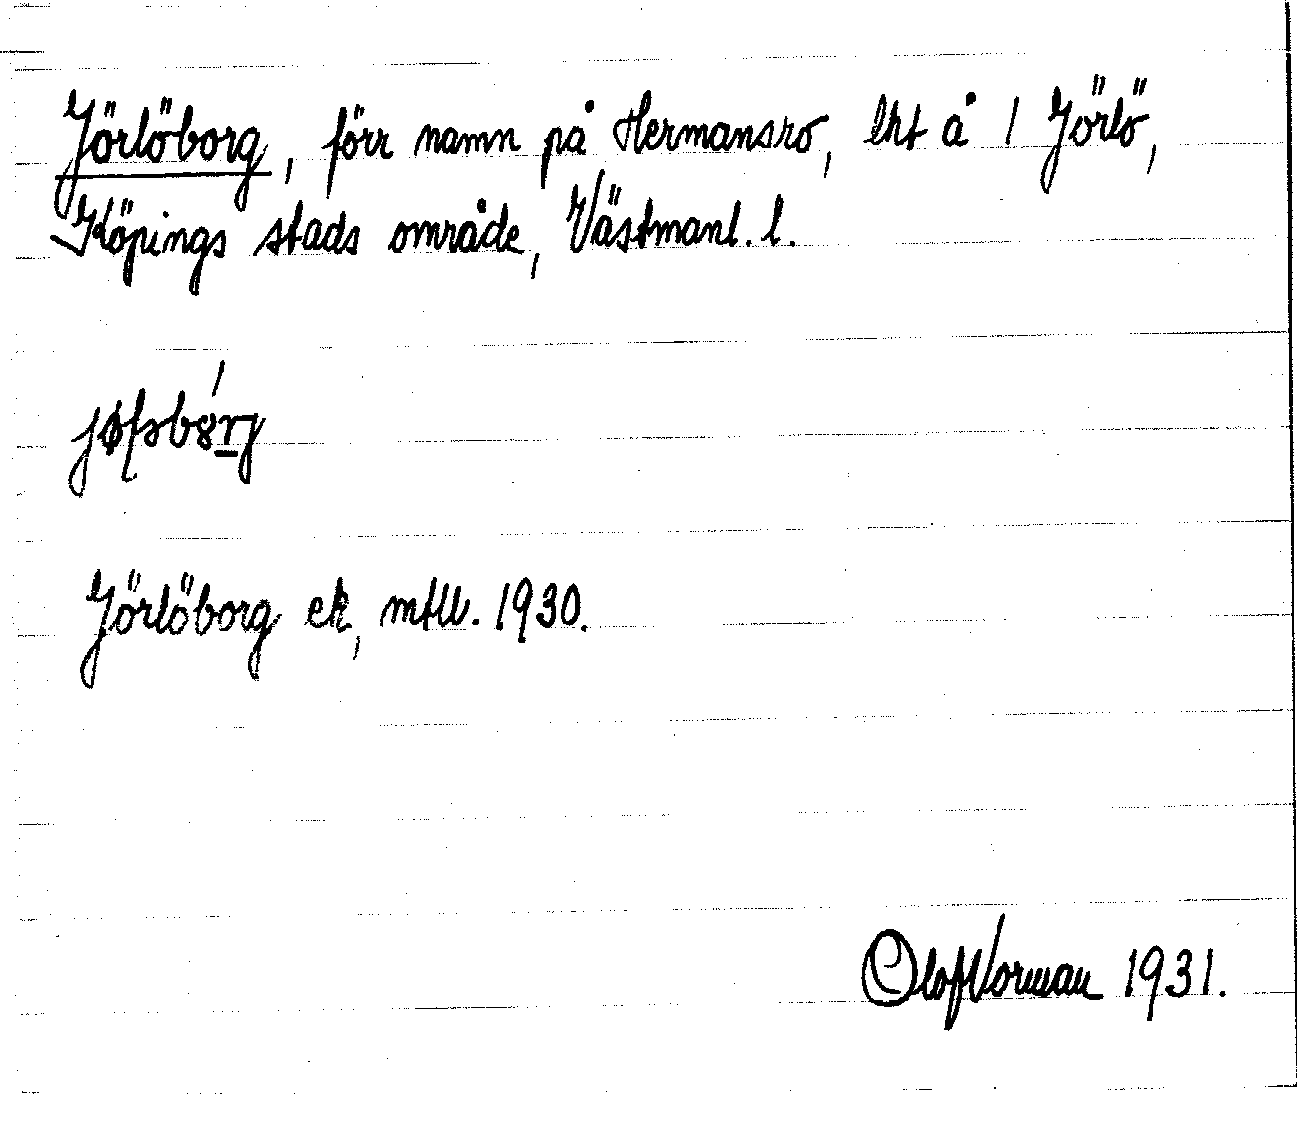 Jörlöborg, förr namn på Hermansro, lht å 1 Jörlö,
Köpings stads område, Västmanl. l.
Jörlöborg ek, mtll. 1930.
Olof Norman 1931.